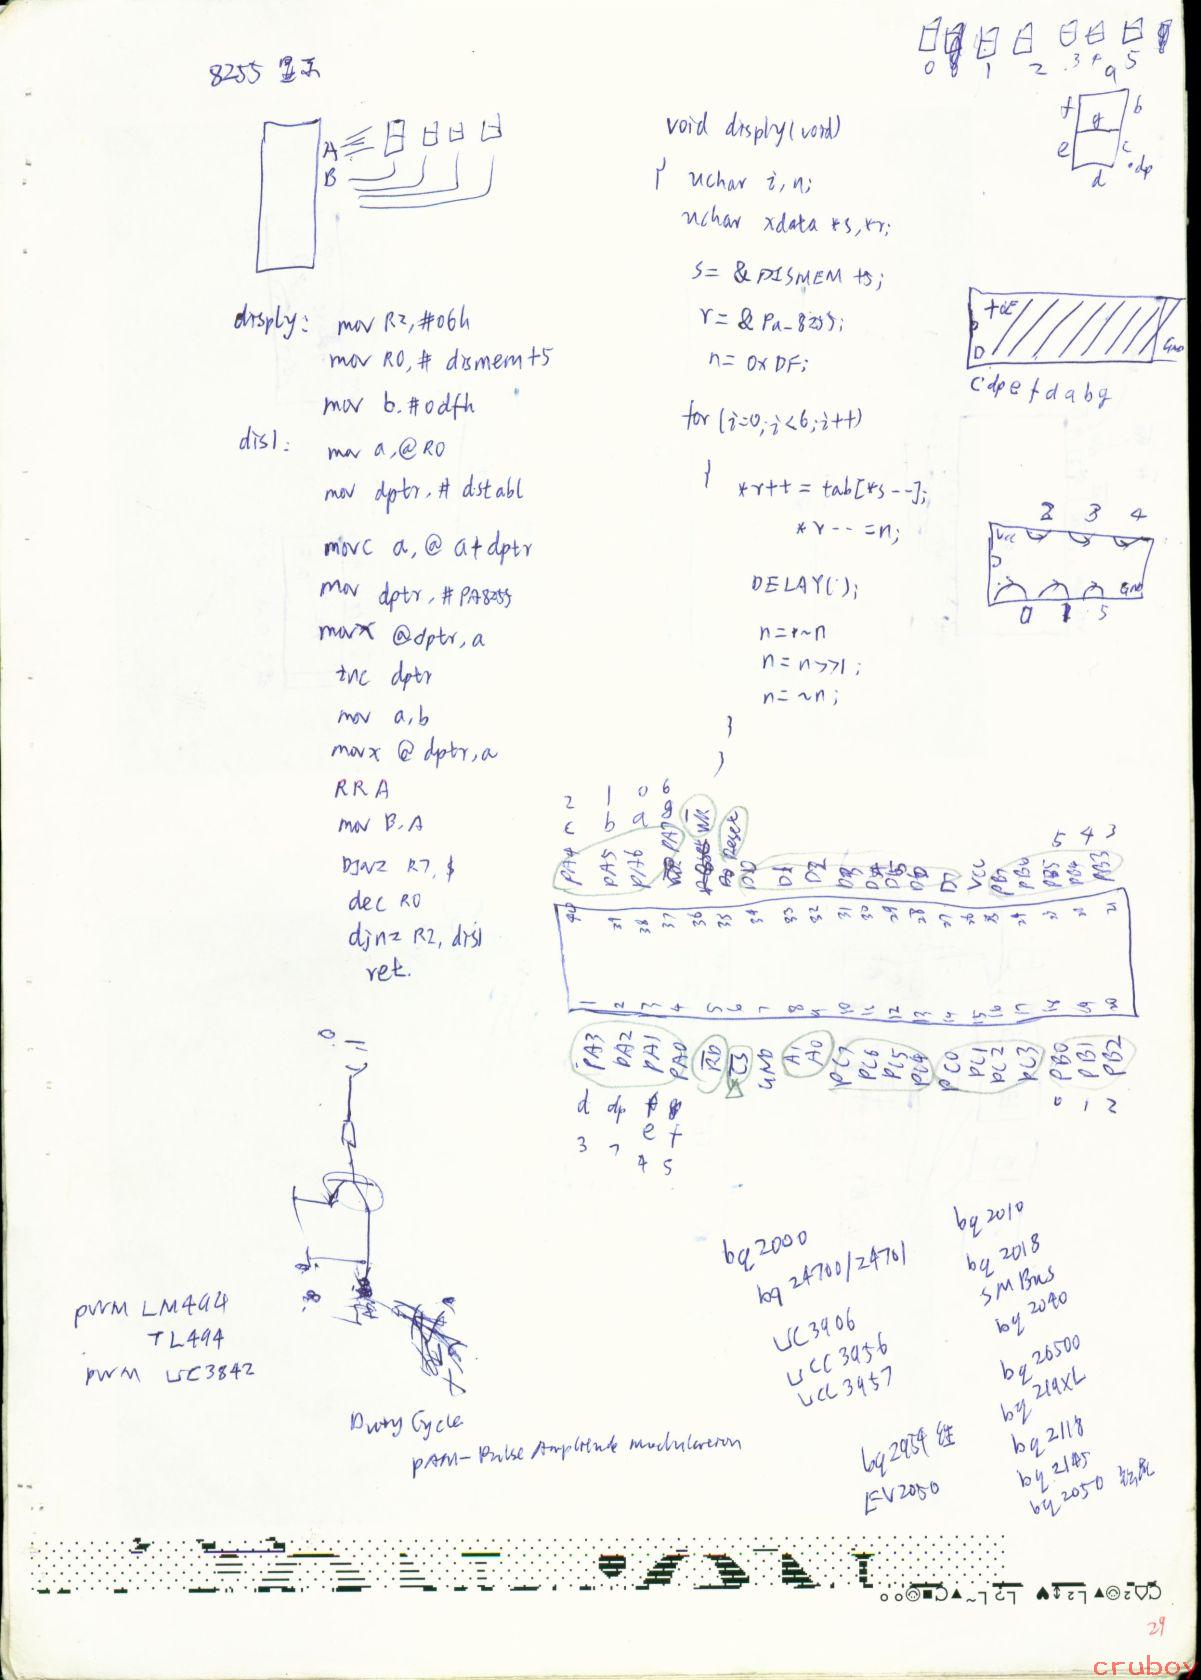 8255 显示
0 1 2 3 4 5
a
f b
g
e c
d .dp
A
B
disply: mov R2,#06h
mov R0,# dismem+5
mov b.#0dfh
dis1: mov a,@R0
mov dptr,# dstabl
movc a,@ a+dptr
mov dptr,#PA8255
movx @dptr,a
inc dptr
mov a,b
movx @dptr,a
RR A
mov B.A
DJNZ R7,$
dec R0
djnz R2, dis1
ret.
void disply(void)
{ uchar i,n;
uchar xdata *s,*r;
s= & DISMEM +5;
r= & Pa_8255;
n= 0xDF;
for (i=0;i<6;i++)
{ *r++ = tab[*s--];
*r-- =n;
DELAY();
n=~n
n= n>>1;
n= ~n;
}
}
D GND
c dp e f d a b g
2 3 4
Vcc
GND
0 1 5
2 1 0 6
c b a g
5 4 3
PA4 PA5 PA6 PA7 WR Reset D0 D1 D2 D3 D4 D5 D6 D7 VCC PB7 PB6 PB5 PB4 PB3
40 39 38 37 36 35 34 33 32 31 30 29 28 27 26 25 24 23 22 21
1 2 3 4 5 6 7 8 9 10 11 12 13 14 15 16 17 18 19 20
PA3 PA2 PA1 PA0 RD CS GND A1 A0 PC7 PC6 PC5 PC4 PC0 PC1 PC2 PC3 PB0 PB1 PB2
d dp e f
3 7 4 5
0 1 2
PWM LM494
TL494
PWM UC3842
Duty Cycle
PAM-Pulse Amplitude modulation
bq2000
bq24700/24701
UC3906
UCC3956
UCC3957
bq2954
EV2050
bq2010
bq2018
SMBus
bq2040
bq26500
bq219XL
bq2118
bq2145
bq2050
29
cruboy